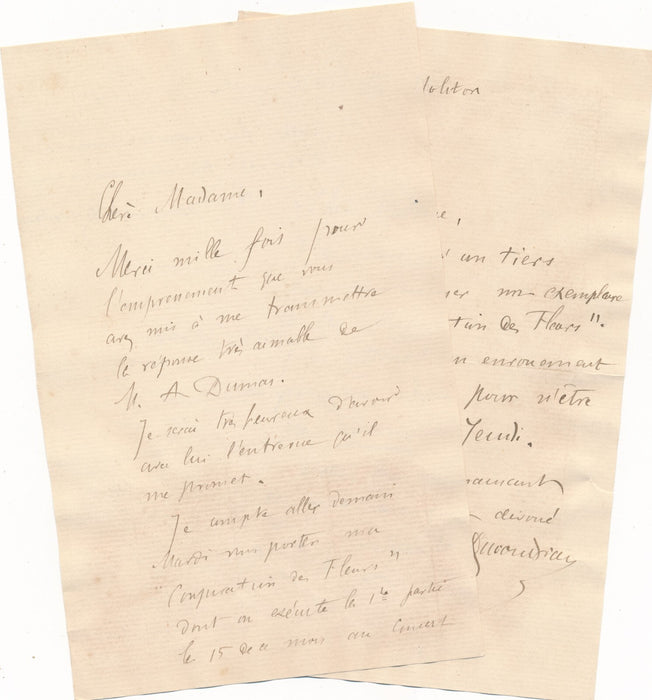 Chère Madame,
Merci mille fois pour
l'empressement que vous
avez mis à me transmettre
la réponse très aimable de
M. A Dumas.
Je serai très heureux d'avoir
avec lui l'entrevue qu'il
me promet.
Je compte aller demain
Mardi vous porter ma
"Conjuration des Fleurs"
dont on exécute la 1re partie
le 15 de ce mois au concert
un tiers
exemplaire
des Fleurs".
enrouement
pour n'être
Jeudi.
dévoué